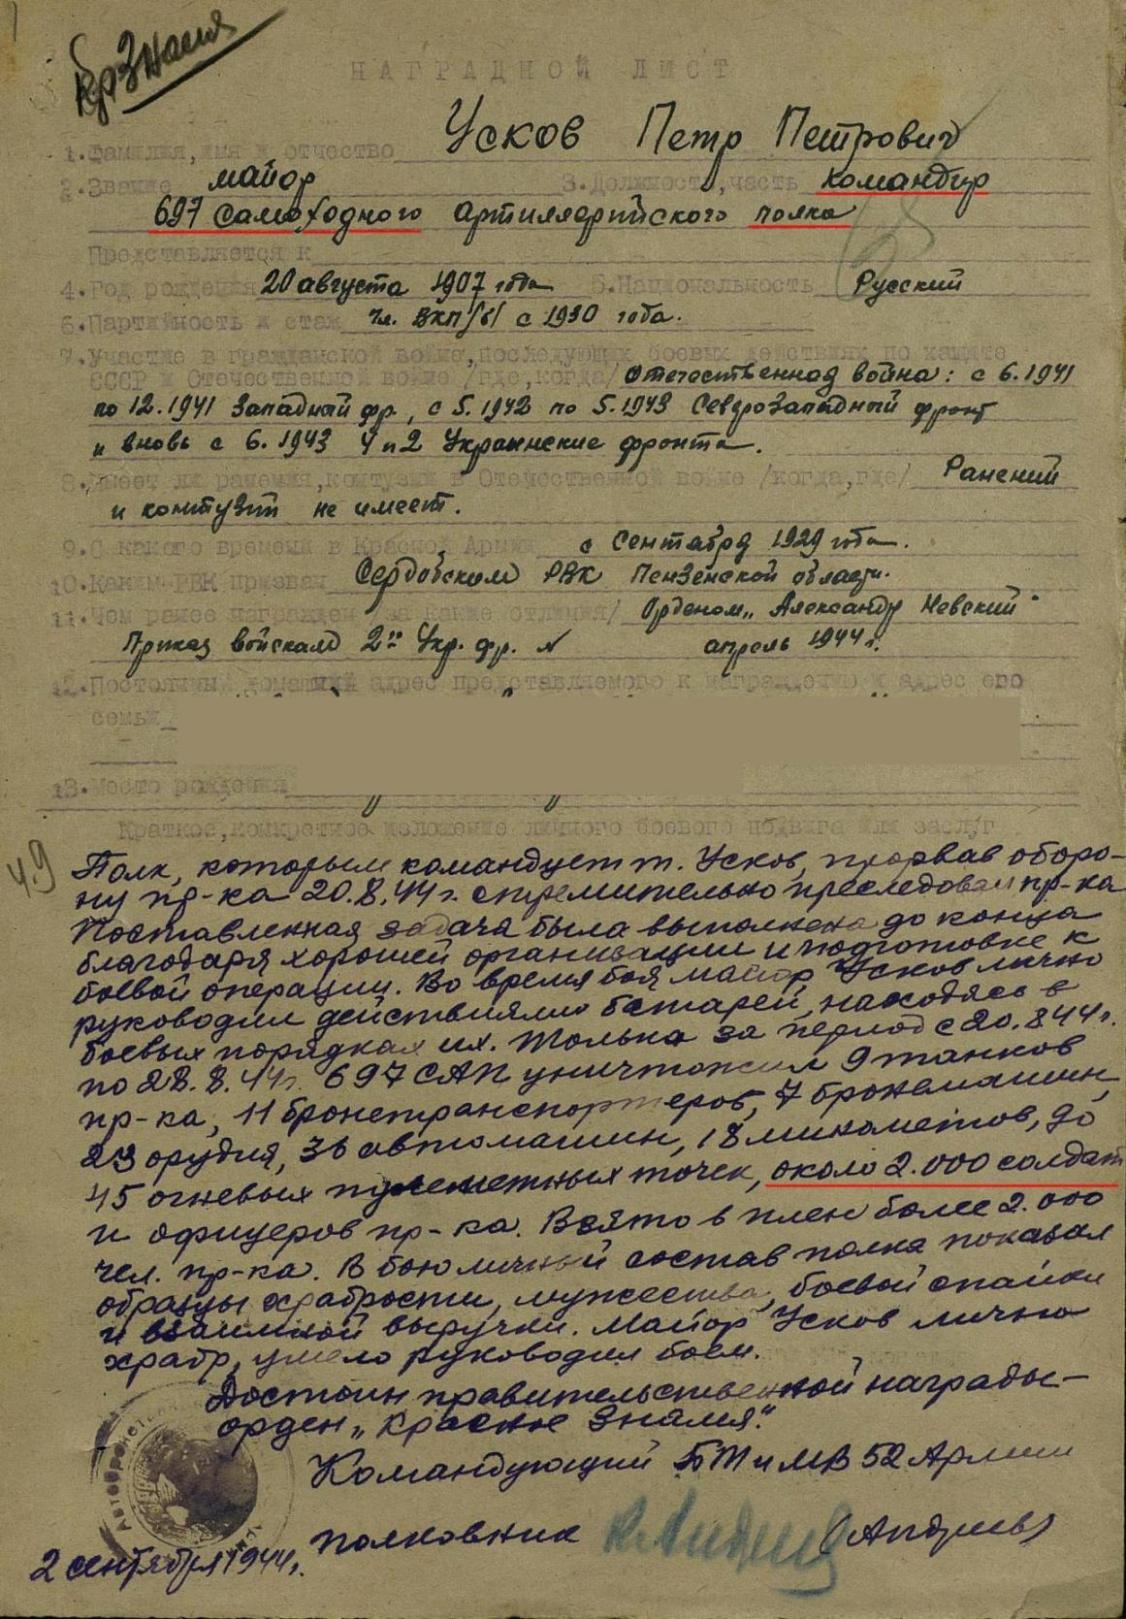 Кр Знамя
НАГРАДНОЙ ЛИСТ
1. Фамилия, имя и отчество Усков Петр Петрович
2. Звание майор 3. Должность, часть командир
697 самоходного артиллерийского полка
Представляется к
4. Год рождения 20 августа 1907 года 5. Национальность Русский
6. Партийность и стаж чл. ВКП/б/ с 1930 года.
7. Участие в гражданской войне, последующих боевых действиях по защите
СССР и Отечественной войне /где, когда/ Отечественная война: с 6.1941
по 12.1941 Западный фр., с 5.1942 по 5.1943 Северозападный фронт
и вновь с 6.1943 4 и 2 Украинские фронта.
8. Имеет ли ранения, контузии в Отечественной войне /когда, где/ Ранений
и контузий не имеет.
9. С какого времени в Красной Армии с Сентября 1929 года.
10. Каким РВК призван Сердобским РВК Пензенской области.
11. Чем ранее награжден /за какие отличия/ Орденом „Александр Невский"
Приказ войскам 2го Укр. фр. № апрель 1944 г.
12. Постоянный домашний адрес представляемого к награждению и адрес его
семьи
13. Место рождения
Краткое, конкретное изложение личного боевого подвига или заслуг
49 Полк, которым командует т. Усков, прорвав оборо-
ну пр-ка 20.8.44 г. стремительно преследовал пр-ка
Поставленная задача была выполнена до конца
благодаря хорошей организации и подготовке к
боевой операции. Во время боя майор Усков лично
руководил действиями батарей, находясь в
боевых порядках их. Только за период с 20.8 44 г.
по 28.8.44 г. 697 САП уничтожил 9 танков
пр-ка, 11 бронетранспортеров, 7 бронемашин,
23 орудия, 36 автомашин, 18 минометов, до
45 огневых пулеметных точек, около 2.000 солдат
и офицеров пр-ка. Взято в плен более 2.000
чел. пр-ка. В бою личный состав полка показал
образцы храбрости, мужества, боевой спайки
и взаимной выручки. Майор Усков лично
храбр, умело руководил боем.
Достоин правительственной награды-
орден „Красное Знамя".
Командующий БТ и МВ 52 Армии
полковник (Андреев)
2 сентября 1944 г.